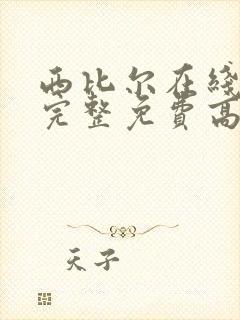 西比尔在线
完整免費高
天子